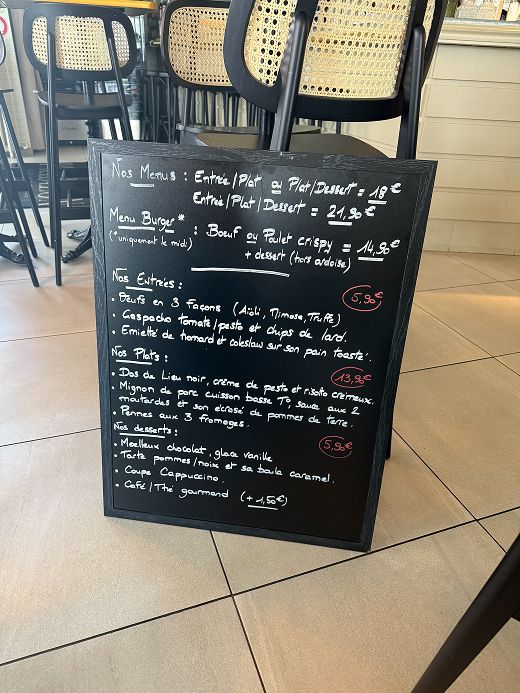 Nos Menus : Entrée/Plat ou Plat/Dessert = 18€
Entrée/Plat/Dessert = 21,90€
Menu Burger* : Boeuf ou Poulet crispy = 14,90€
(*uniquement le midi) + dessert (hors ardoise)
Nos Entrées : 5,90€
• Oeufs en 3 façons (Aioli, Mimosa, Truffe)
• Gaspacho tomate/pesto et chips de lard.
• Emietté de homard et coleslaw sur son pain toasté.
Nos Plats : 13,90€
• Dos de Lieu noir, crème de pesto et risotto crémeux.
• Mignon de porc cuisson basse T°, sauce aux 2
moutardes et son écrasé de pommes de terre.
• Pennes aux 3 fromages.
Nos desserts : 5,90€
• Moelleux chocolat, glace vanille
• Tarte pommes/noix et sa boule caramel.
• Coupe Cappuccino.
• Café/Thé gourmand (+ 1,50€)